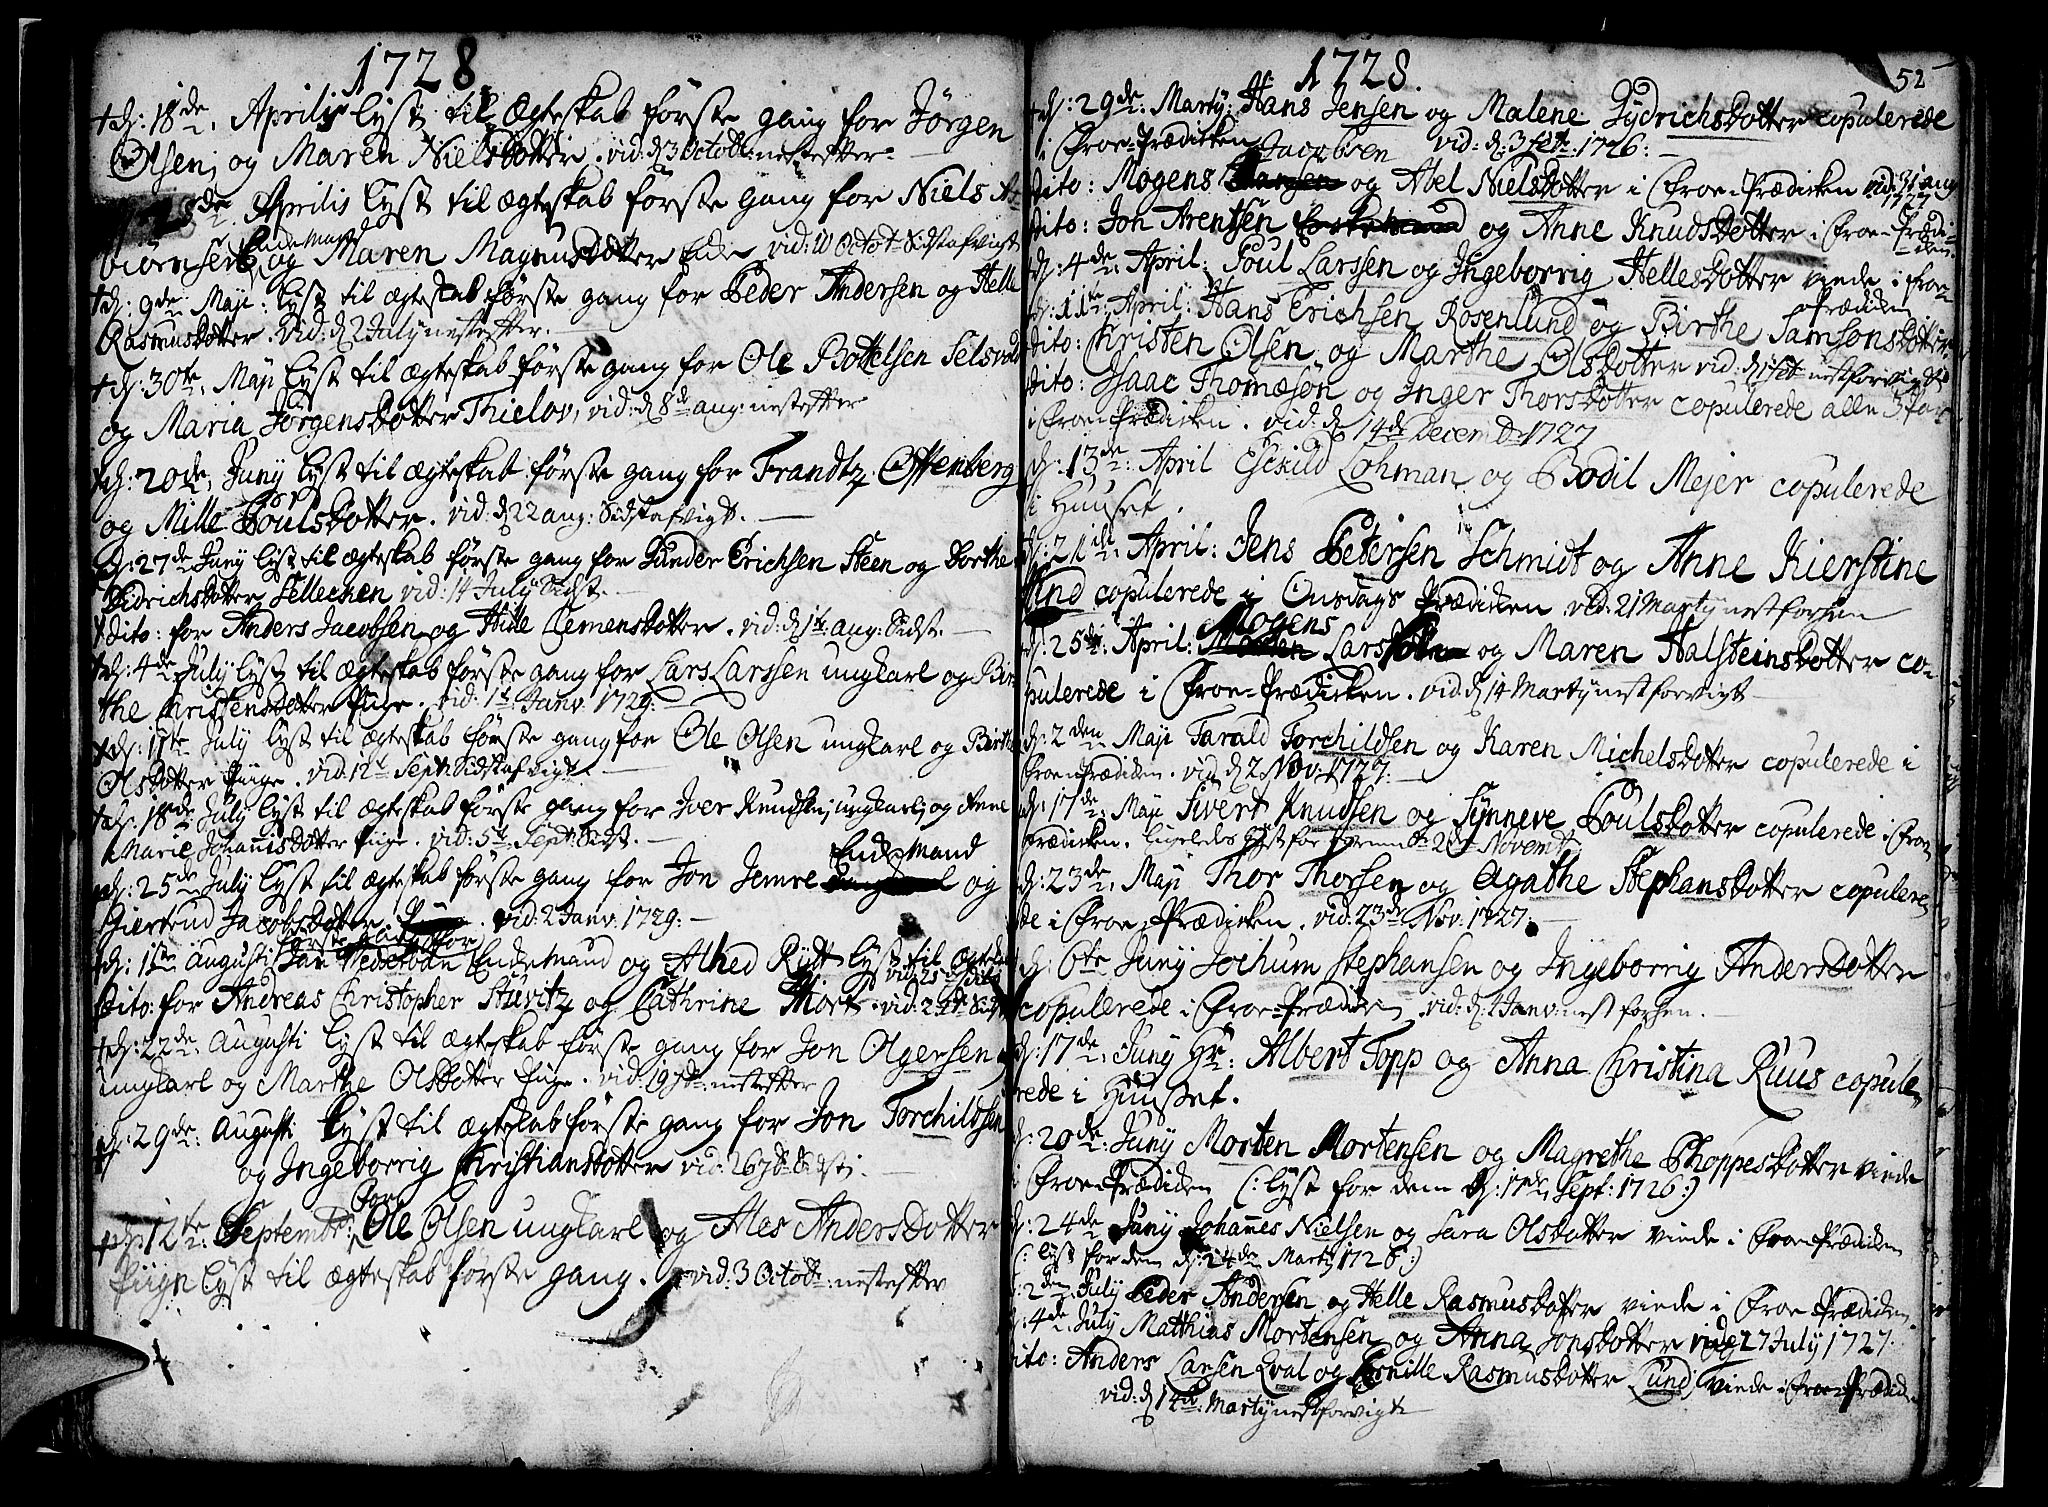 1728
d: 18de Aprilis lyst til Ægteskab første gang for Jörgen
Olsen, og Maren Nielsdotter. vid: d 3 Octob: nestefter.
de Aprilis lyst til ægteskab første gang for Niels As-
Endemand
biörnsen, og Maren Magnusdotter Enke vid: 10 Octob: Sidstafvigt
d: 9de Maji: lyst til ægteskab første gang for Peder Andersen og Helle
Rasmusdotter. vid: d 2 July nestefter.
d: 30te Maji lyst til ægteskab første gang for Ole Bottelsen Selsvold
og Maria Jörgensdotter Thielov, vid: d 8de aug: nestefter
d: 20de Juny lyst til ægteskab første gang for Frandtz Offenberg
og Mille Poulsdotter. vid: d 22 aug: Sidstafvigt.
d: 27de Juny lyst til ægteskab første gang for Gunder Erichsen Steen og Dorthe
Didrichsdotter Selleeken vid: 14 July Sidst.
dito: for Anders Jacobsen og Hille Clemensdotter. vid: d 1t aug: Sidst.
d: 4de July lyst til ægteskab første gang for Lars Larssen ungkarl og Bir-
the Christensdotter Piige. vid: 1t Janv. 1729.
d: 11te July lyst til ægteskab første gang for Ole Olsen ungkarl og Birthe
Olsdotter Piige. vid: 12t Sept: Sidstafvigt.
d: 18de July lyst til ægteskab første gang for Iver Knudsen, ungkarl, og Anne
Marie Johannisdotter Piige. vid: 5t Sept: Sidst.
Endemand
d: 25de July lyst til ægteskab første gang for Jon Jemre og
Giertrud Jacobsdotter. vid: 2 Janv. 1729.
første gang for
d: 1ste Augusti Jan Endemand og Alhed Rydt lyst til ægteskab
vid: 25
dito: for Andreas Christopher Stuvitz og Cathrine Mort. vid: Sidst
d: 22de Augusti lyst til ægteskab første gang for Jon Olgersen
ungkarl og Marthe Olsdotter Piige. vid: 19 nestefter
d: 29de Augusti lyst til ægteskab første gang for Jon Torchildsen
og Ingeborrig Christiansdotter vid: 26 Sidst.
for
d: 12te Septembr: Ole Olsen ungkarl og Ales Andersdotter
Piign lyst til ægteskab første gang. vid: 3 Octob: nestefter
1728.
52
d: 29de Marty: Hans Jensen og Malene Dydrichsdotter copulerede
i Froe-Prædicken vid: d: 3 1726.
Jacobsen
dito: Mogens og Abel Nielsdotter i Froe-Prædicken vid: 31 aug
1727
dito: Jon Arentsen og Anne Knudsdotter i Froe-Prædi-
cken.
d: 4de April: Poul Larssen og Ingeborrig Hellesdotter viede i froe-
Prædicken
d: 11te April: Hans Erichsen Rosenlund og Birthe Samsonsdotter
dito: Christen Olsen og Marthe Olsdotter vid: d: nestforvigt
dito: Isaac Thomæsön og Inger Thorsdotter copulerede alle 3 Par
i Froe-Prædicken. vid: d 14de Decemb 1727
d: 13de April Eschild Lohman og Bodil Mejer copulerede
i Huuset.
d: 21de April: Jens Petersen Schmidt og Anne Kierstine
Lind copulerede i Onsdags Prædicken vid: 21 Marty nestforhen
Mogens
d: 25de April: Lars og Maren Halsteinsdotter co-
pulerede i Froe-Prædicken. vid: d 14 Marty nestforvigt
d: 2den Maji Tarald Torchildsen og Karen Michelsdotter copulerede i
Froe-Prædicken. vid: d 2 Nov. 1727.
d: 17de Maji Sivert Knudsen og Synneve Poulsdotter copulerede i Froe
Prædicken. Ligeledes lyst for Novemb:
d: 23de Maji Thor Thorsen og Agathe Stephansdotter copulere-
de i Froe-Prædicken. vid: 23de Nov. 1727.
d: 6te Juny Jochum Stephansen og Ingeborrig Andersdotter
copulerede i Froe-Prædicken. vid: d: 2 Janv: nestforhen.
d: 17de Juny Hr: Albert Topp og Anna Christina Ruus copule-
rede i Huuset.
d: 20de Juny Morten Mortensen og Magrethe Thoppesdotter viede
i Froe-Prædicken (: lyst for dem d: 17de Sept: 1726:)
d: 24de Juny Johannes Nielsen og Sara Olsdotter viede i Froe-Prædicken
(: lyst for dem d: 24de Marty 1726:)
d: 2den July Peder Andersen og Helle Rasmusdotter viede i Froe-Prædicken.
d: 4de July Matthias Mortensen og Anna Jonsdotter vid: 27 July 1727.
dito: Anders Larsen Qval og Pernille Rasmusdotter Lund, viede i Froe-Prædick:
vid: d 14de Marty nestforvigt